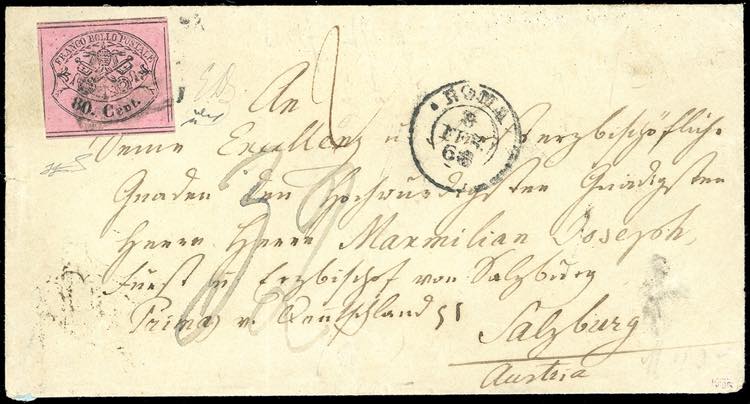 FRANCO BOLLO POSTALE
80. Cent.
ROMA
8
FEB
68
An
Seine Excellenz u erzbischöfliche
Gnaden den Hochwürdigsten Gnädigsten
Herrn Herrn Maxmilian Joseph,
Fürst u Erzbischof von Salzburg
Primas v. Deutschland
Salzburg
Austria